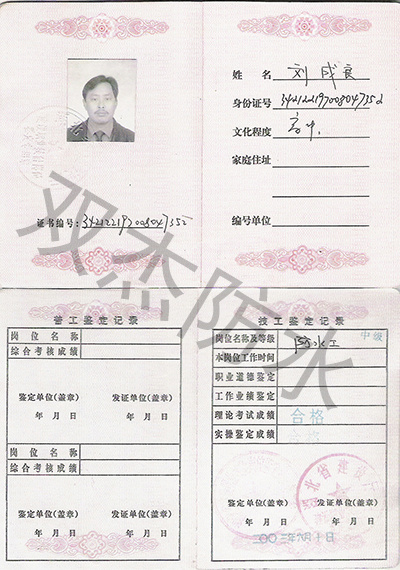 姓名 刘成良
身份证号 342122197008047352
文化程度 高中
家庭住址
编号单位
证书编号:342122197008047352
双杰防水
普工鉴定记录
岗位名称
综合考核成绩
鉴定单位(盖章) 发证单位(盖章)
年月日 年月日
岗位名称
综合考核成绩
鉴定单位(盖章) 发证单位(盖章)
年月日 年月日
技工鉴定记录
岗位名称及等级 防水工 中级
本岗位工作时间
职业道德鉴定
工作业绩鉴定
理论考试成绩 合格
实操鉴定成绩 合格
北省建设
鉴定单位(盖章) 发证单位(盖章)
年月日 年月日
二〇〇三年六月10日